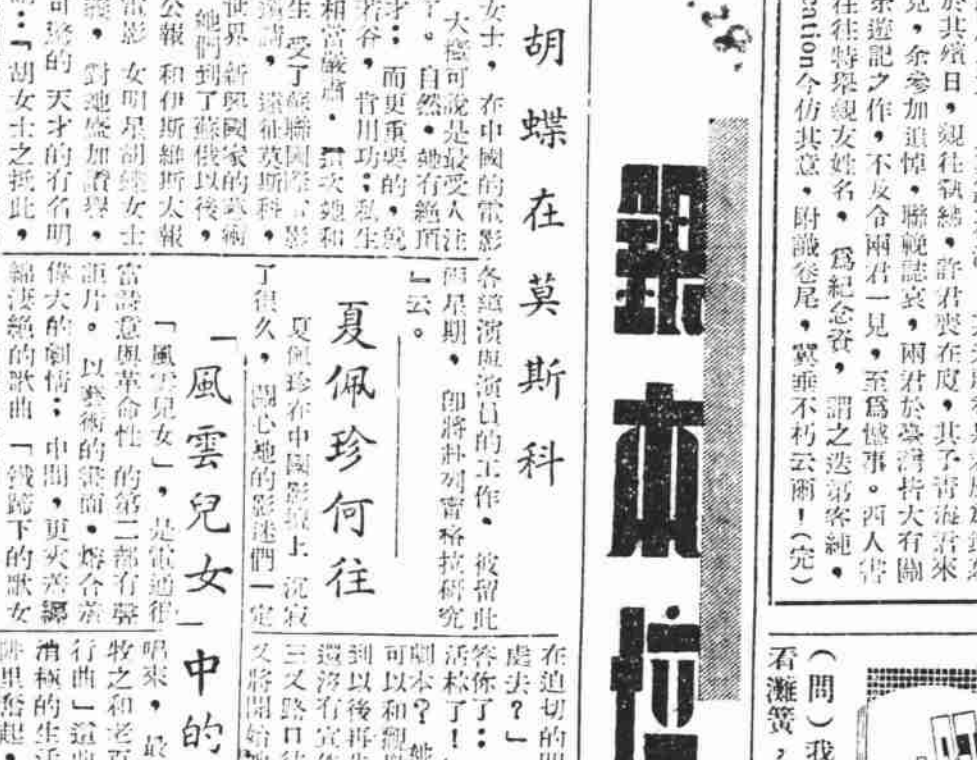 於其殯日，親往執紼，許君喪在廈，其子青海君來
見，余參加追悼，聯輓誌哀，兩君於臺灣皆大有關
余遊記之作，不及令兩君一見，至爲憾事。西人書
往往特舉親友姓名，爲紀念者，謂之迭第客純，
ntion今仿其意，附識卷尾，冀垂不朽云爾！（完）
（問）我
看灘簧，
銀本位
胡蝶在莫斯科
女士，在中國的電影
大槪可說是最受人注
了。自然，她有絕頂
才；而更重要的，就
若谷，肯用功；私生
和當嚴肅。這次她和
生 受了蘇聯國際電影
邀請，遠征莫斯科，
世界 新興國家的藝術
她們到了蘇俄以後，
公報 和伊斯維斯太報
電影 女明星胡蝶女士
義，對她盛加讚譽，
可驚的 天才的有名明
「胡女士之抵此，
各導演與演員的工作，被留此
兩星期，卽將赴列甯格拉研究
』云。
夏佩珍何往
夏佩珍在中國影壇上 沉寂
了很久，關心她的影迷們一定
在迫切的問
處去？」
答你了：
活榇了！
劇本？她
可以和觀
到以後再
還沒有宣
三叉路口
又將開始
「風雲兒女」中的
「風雲兒女」，是電通很
富詩意與革命性 的第二部有聲
鉅片。以藝術的畫面，熔合着
偉大的劇情；中間，更夾着纏
綿淒絕的歌曲 「鐵蹄下的歌女
唱來，最
牧之和老
行曲」這
消極的生活
陣里奮起，